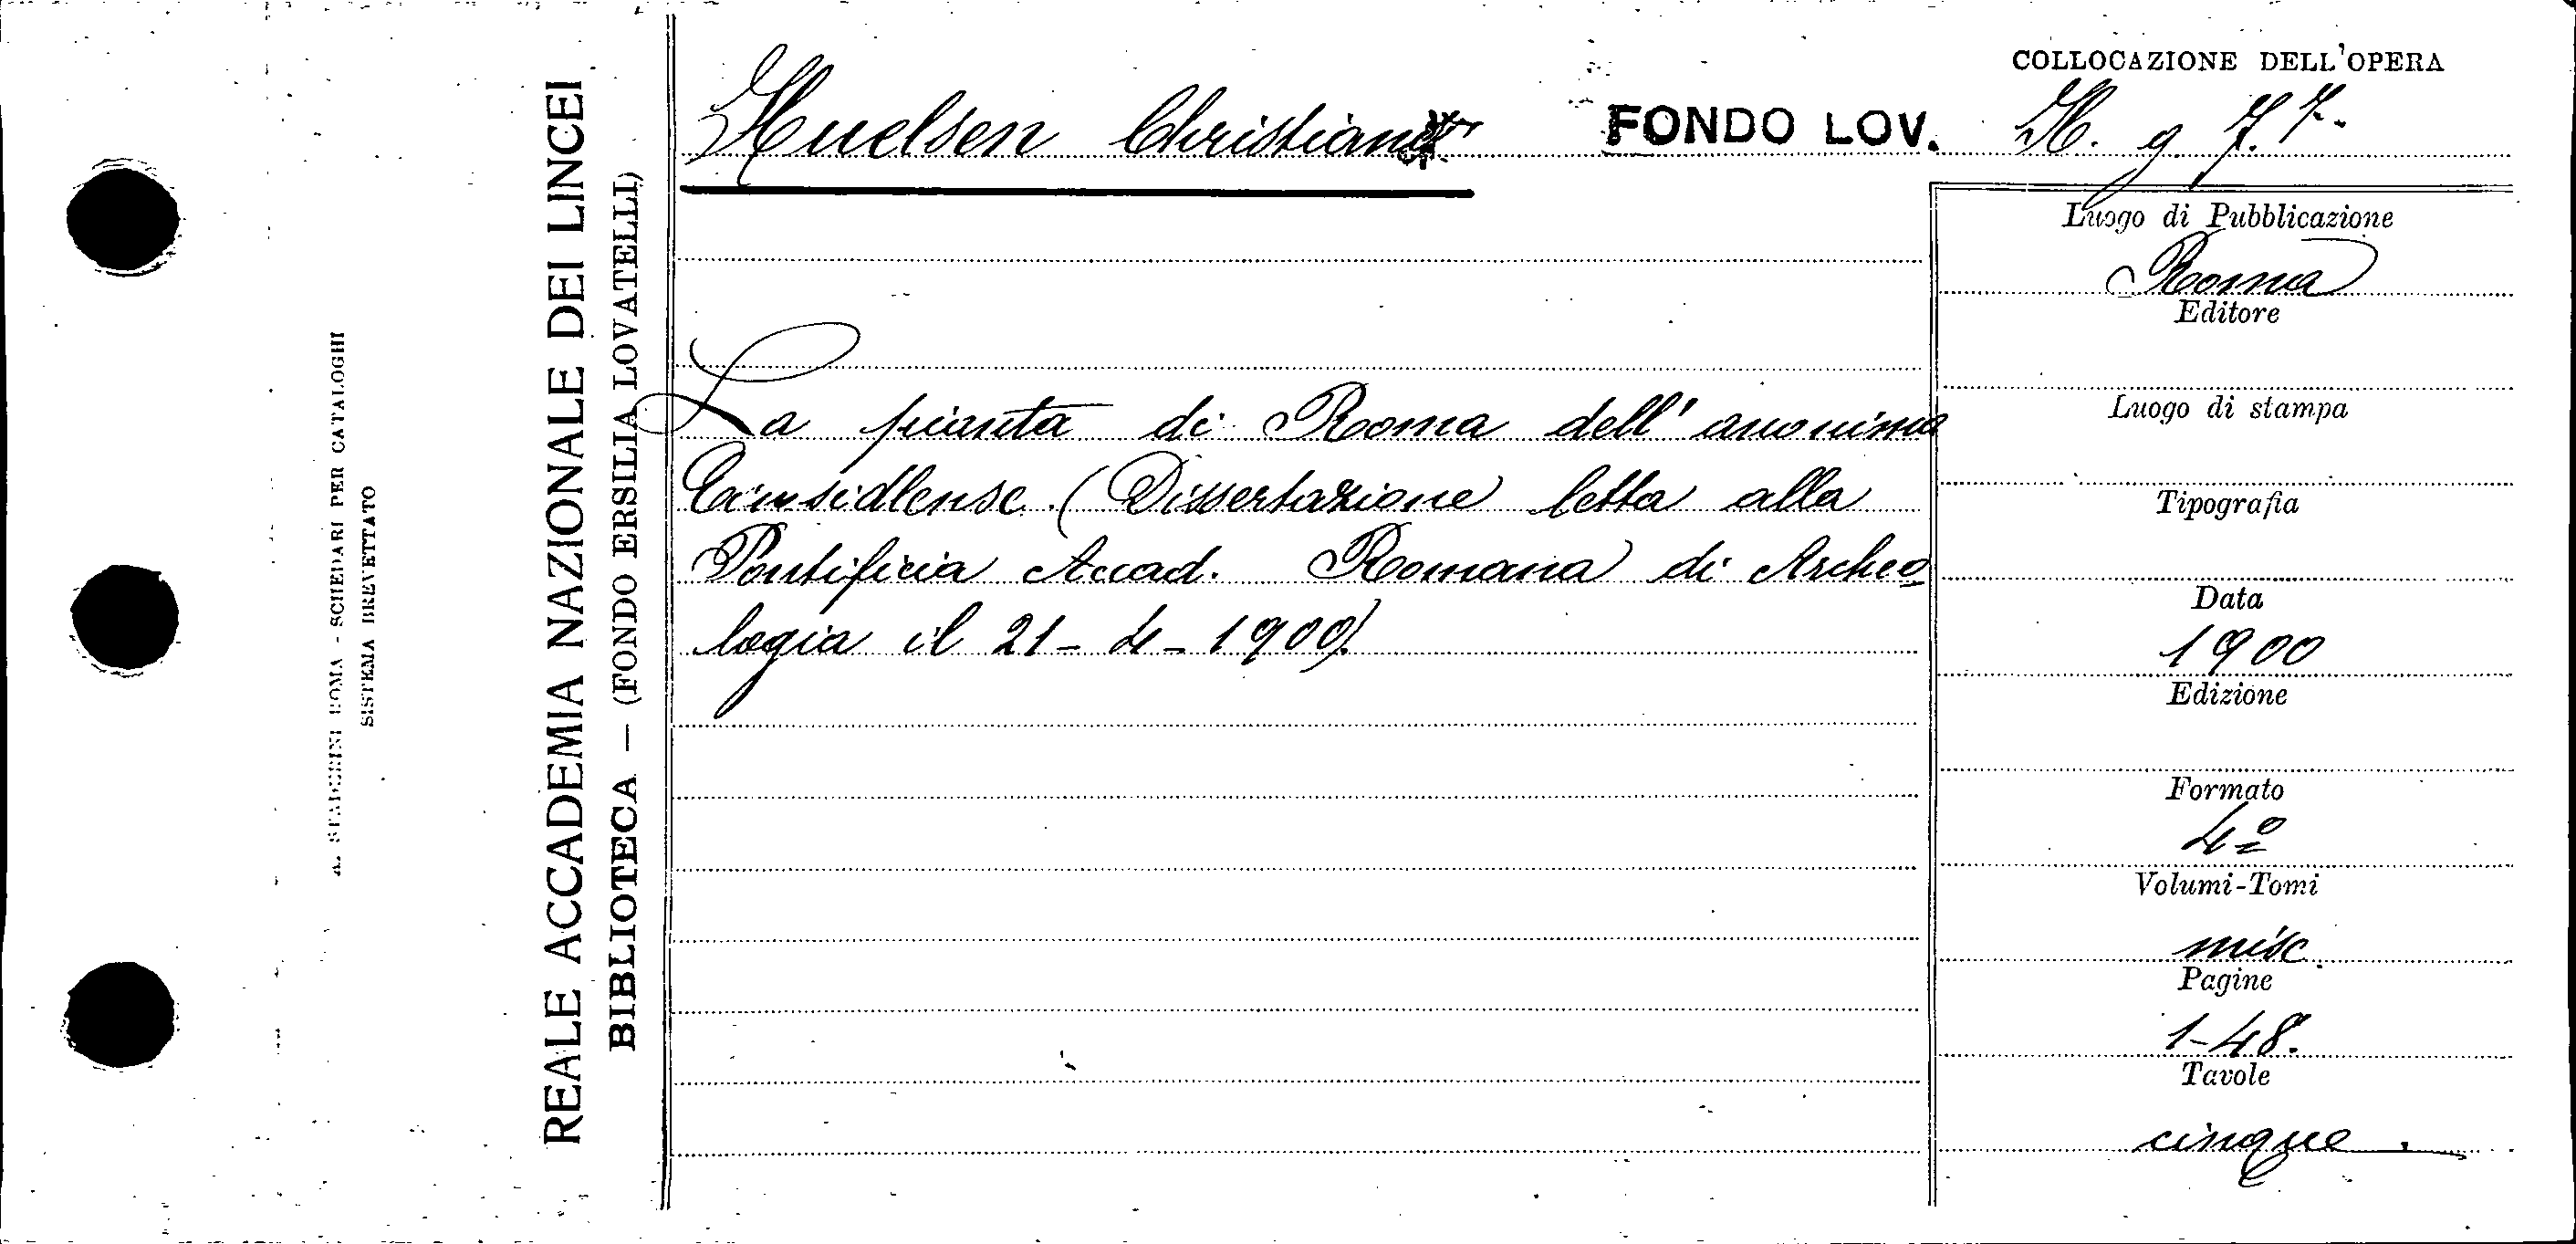 COLLOCAZIONE DELL'OPERA
Huelsen Christian
FONDO LOV. H. g. 7.7.
REALE ACCADEMIA NAZIONALE DEI LINCEI
BIBLIOTECA — (FONDO ERSILIA LOVATELLI)
A. STADERINI ROMA - SCHEDARI PER CATALOGHI
SISTEMA BREVETTATO
La pianta di Roma dell' anonimo
Einsidlense (Dissertazione letta alla
Pontificia Accad. Romana di Archeo
logia il 21-4-1900).
Luogo di Pubblicazione
Roma
Editore
Luogo di stampa
Tipografia
Data
1900
Edizione
Formato
4º
Volumi-Tomi
misc.
Pagine
1-48.
Tavole
cinque.